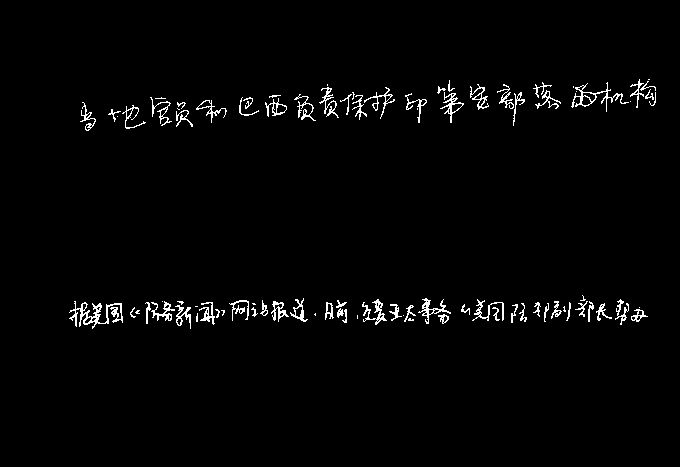 当地官员和巴西负责保护印第安部落的机构
据美国《防务新闻》网站报道,日前,负责亚太事务的美国防部副部长帮办